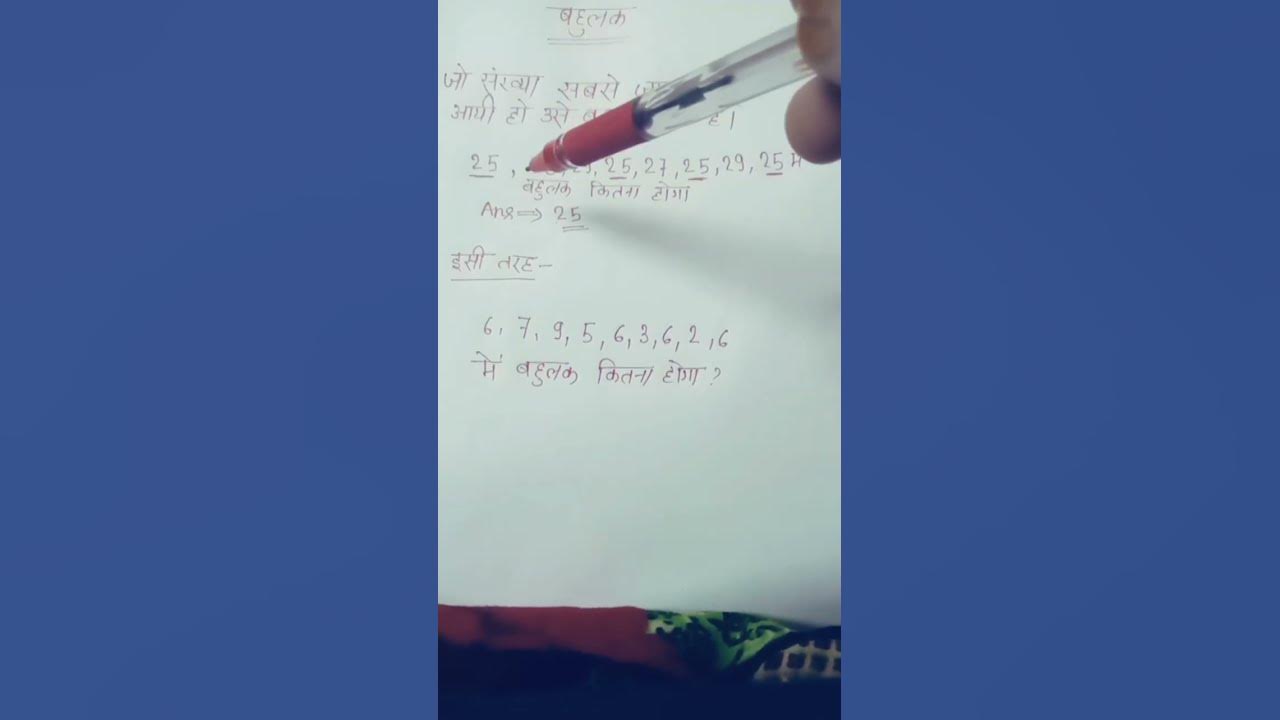 बहुलक
जो संख्या सबसे
आयी हो उसे है।
25, 25, 27, 25, 29, 25 में
बहुलक कितना होगा
Ans ⇒ 25
इसी तरह –
6, 7, 9, 5, 6, 3, 6, 2, 6
में बहुलक कितना होगा ?